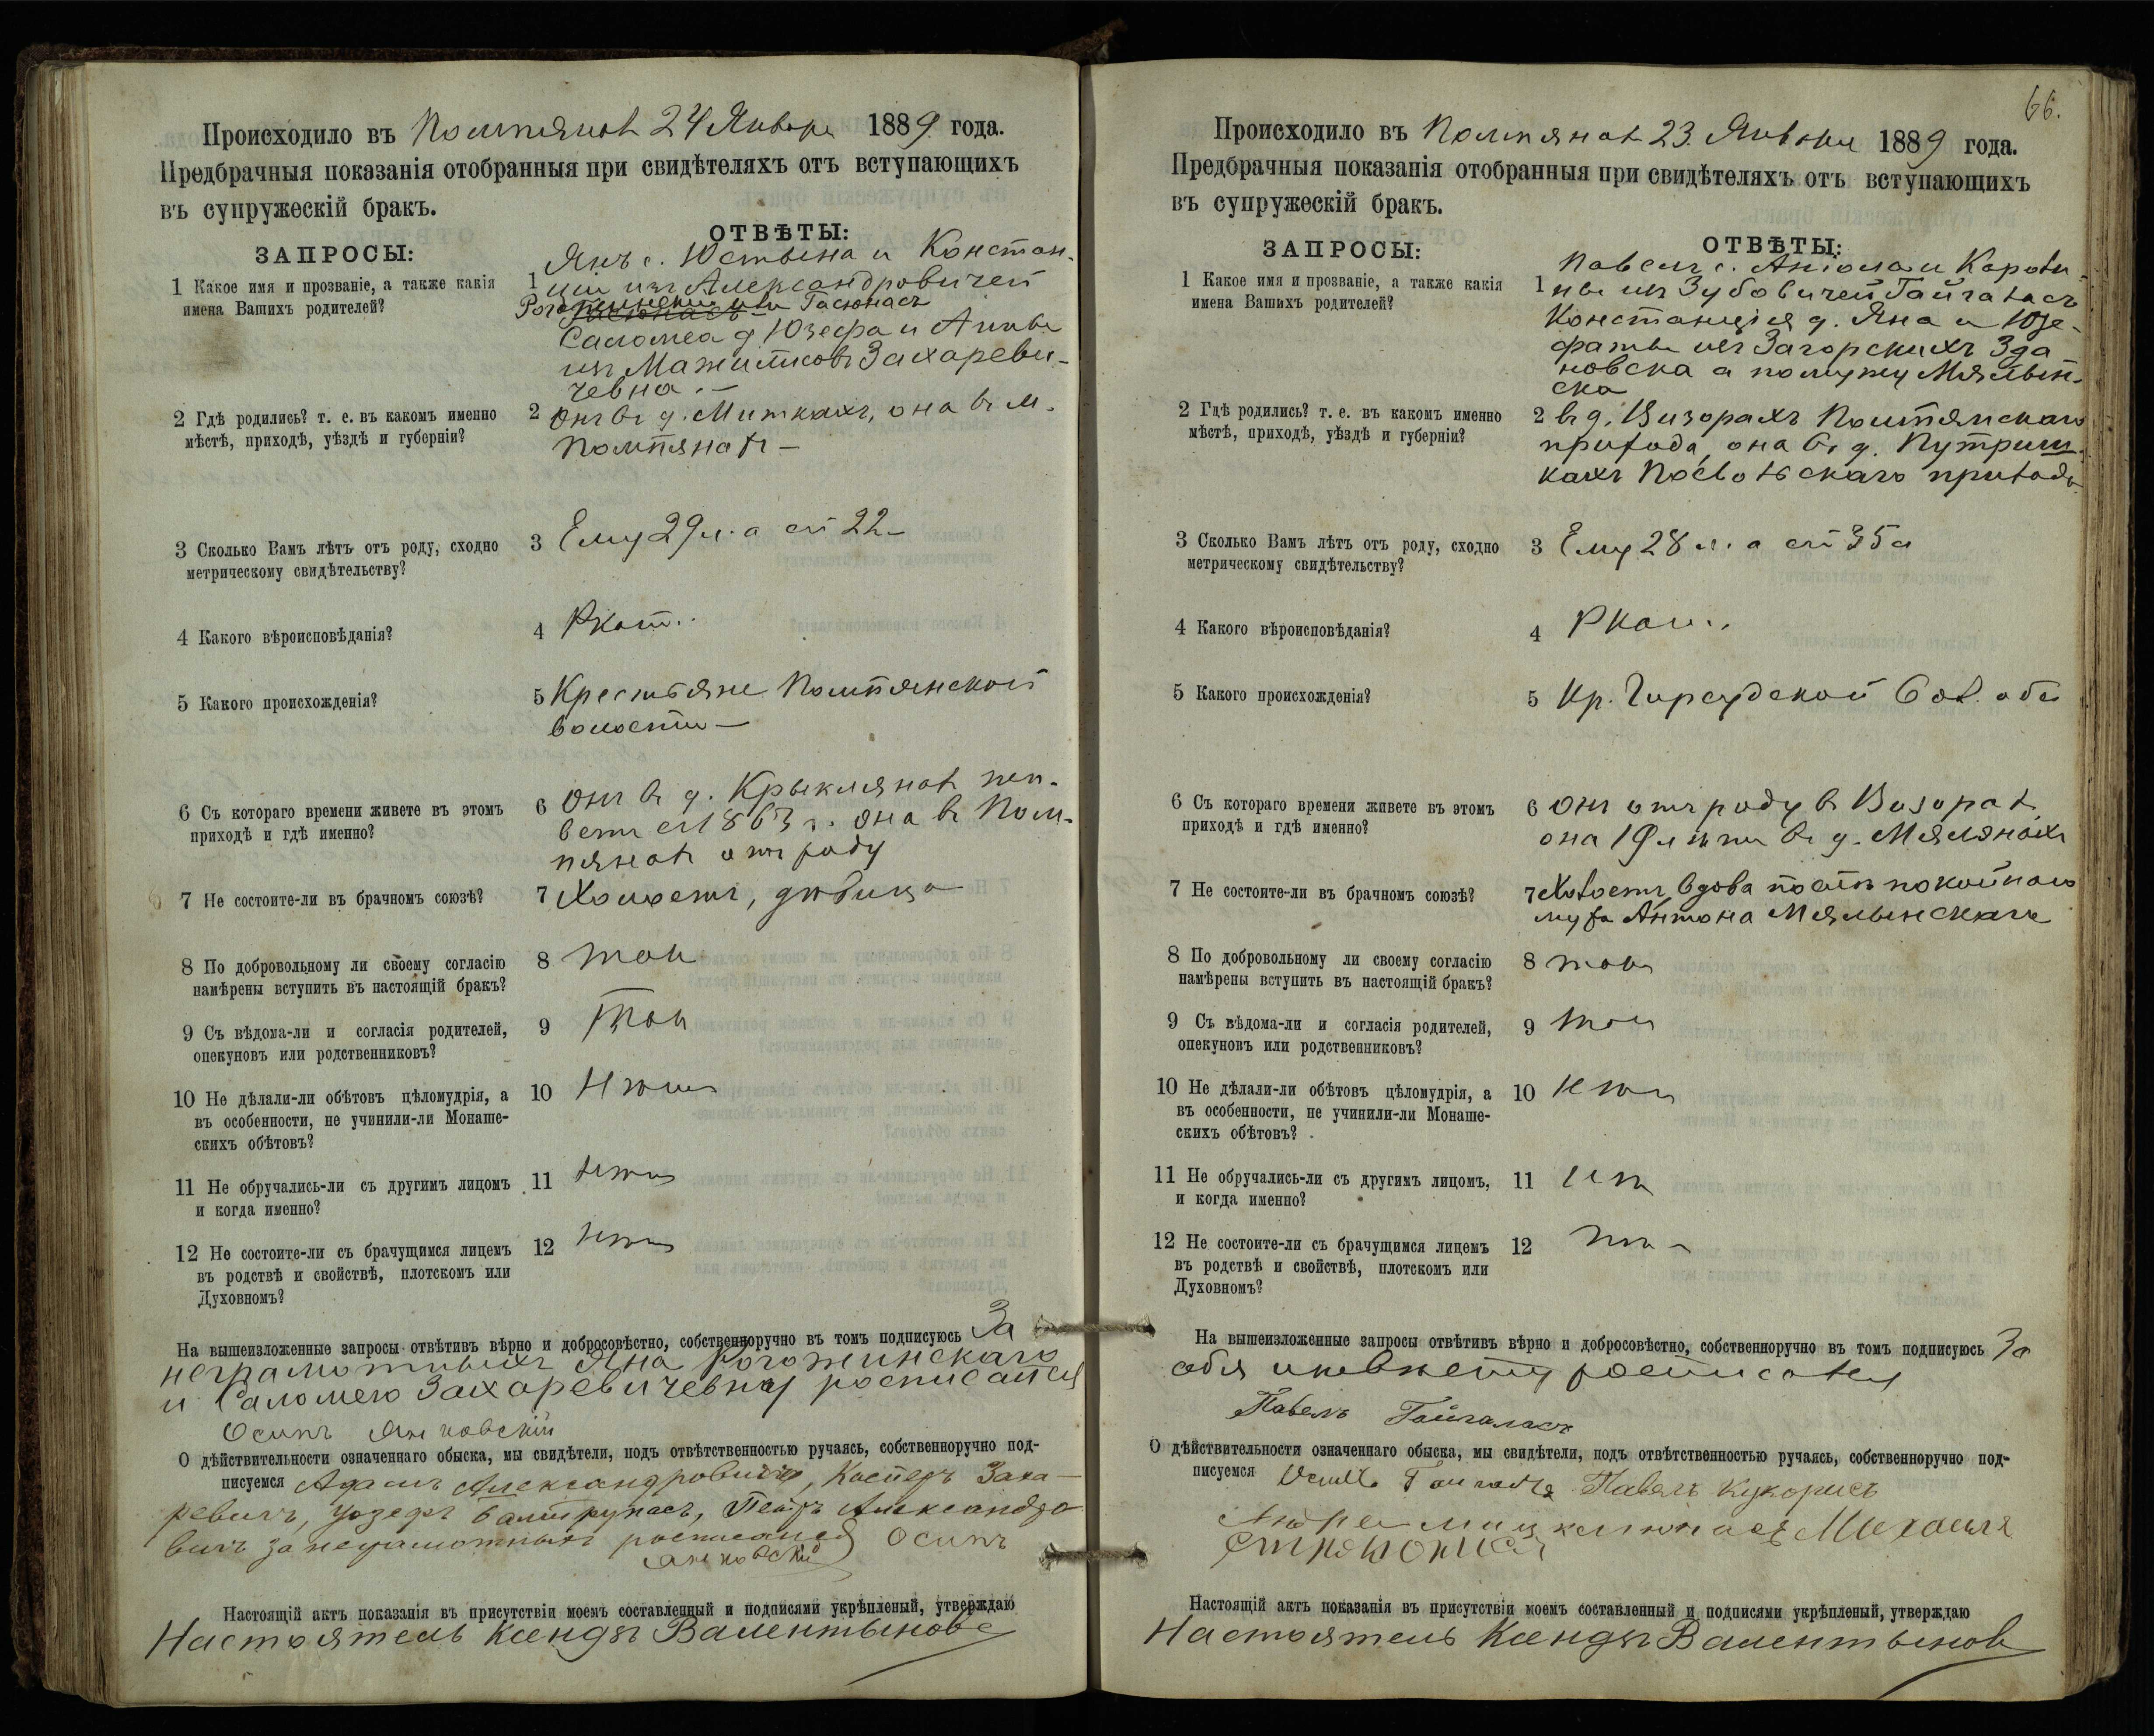 Происходило въ Помпянах 24 Января 1889 года.
Предбрачныя показанія отобранныя при свидѣтеляхъ отъ вступающихъ
въ супружескій бракъ.
ЗАПРОСЫ:
ОТВѢТЫ:
1 Какое имя и прозваніе, а также какія
имена Вашихъ родителей?
1 Янъ с. Юстына и Констан-
ціи изъ Александровичей
или Гасюнасъ
Саломеа д. Юзефа и Анны
изъ Захареви-
чевна —
2 Гдѣ родились? т. е. въ какомъ именно
мѣстѣ, приходѣ, уѣздѣ и губерніи?
2 Онъ въ д. Миткахъ, она въ м.
Помпянах —
3 Сколько Вамъ лѣтъ отъ роду, сходно
метрическому свидѣтельству?
3 Ему 29 л. а ей 22 —
4 Какого вѣроисповѣданія?
4 Ркат..
5 Какого происхожденія?
5 Крестьяне Помпянской
волости —
6 Съ котораго времени живете въ этомъ
приходѣ и гдѣ именно?
6 Онъ въ д. Крыклянах
1863 г. она въ Пом-
пянах отъ роду
7 Не состоите-ли въ брачномъ союзѣ?
7 Холостъ, дѣвица
8 По добровольному ли своему согласію
намѣрены вступить въ настоящій бракъ?
8 так
9 Съ вѣдома-ли и согласія родителей,
опекуновъ или родственниковъ?
9 Так
10 Не дѣлали-ли обѣтовъ цѣломудрія, а
въ особенности, не учинили-ли Монаше-
скихъ обѣтовъ?
10 Нѣтъ
11 Не обручались-ли съ другимъ лицомъ
и когда именно?
11 нѣтъ
12 Не состоите-ли съ брачущимся лицемъ
въ родствѣ и свойствѣ, плотскомъ или
Духовномъ?
12 нѣтъ
На вышеизложенные запросы отвѣтивъ вѣрно и добросовѣстно, собственноручно въ томъ подписуюсь За
неграмотныхъ Яна Рогожинскаго
и Саломею Захаревичевну росписался
Осипъ Янковскій
О дѣйствительности означеннаго обыска, мы свидѣтели, подъ отвѣтственностью ручаясь, собственноручно под-
писуемся Адамъ Александровичъ, Касперъ Заха-
ревичъ, Юзефъ Балтрунасъ, Петръ Александро
вичъ за неграмотныхъ росписался Осипъ
Янковскій
Настоящій актъ показанія въ присутствіи моемъ составленный и подписями укрѣпленый, утверждаю
Настоятель Ксендзъ Валентынови
66.
Происходило въ Помпянах 23 Января 1889 года.
Предбрачныя показанія отобранныя при свидѣтеляхъ отъ вступающихъ
въ супружескій бракъ.
ЗАПРОСЫ:
ОТВѢТЫ:
1 Какое имя и прозваніе, а также какія
имена Вашихъ родителей?
1 Павелъ с. Антона и Кароли-
ны изъ Зубовичей Гайгаласъ
Констанція д. Яна и Юзе-
фаты изъ Загорскихъ Зда
новска а по мужу Мялын-
ска
2 Гдѣ родились? т. е. въ какомъ именно
мѣстѣ, приходѣ, уѣздѣ и губерніи?
2 въ д. Визорахъ Помпянскаго
прихода, она въ д. Путриш-
кахъ Посвольскаго прихода
3 Сколько Вамъ лѣтъ отъ роду, сходно
метрическому свидѣтельству?
3 Ему 28 л. а ей 35 л
4 Какого вѣроисповѣданія?
4 Ркат..
5 Какого происхожденія?
5 Кр. Гирсудской вол. оба
6 Съ котораго времени живете въ этомъ
приходѣ и гдѣ именно?
6 Онъ отъ роду въ Визорах
она 19 лѣтъ въ д. Мялянахъ
7 Не состоите-ли въ брачномъ союзѣ?
7 Холостъ, вдова послѣ покойнаго
мужа Антона Мялынскаго
8 По добровольному ли своему согласію
намѣрены вступить въ настоящій бракъ?
8 так
9 Съ вѣдома-ли и согласія родителей,
опекуновъ или родственниковъ?
9 так
10 Не дѣлали-ли обѣтовъ цѣломудрія, а
въ особенности, не учинили-ли Монаше-
скихъ обѣтовъ?
10 нѣтъ
11 Не обручались-ли съ другимъ лицомъ,
и когда именно?
11 нѣтъ
12 Не состоите-ли съ брачущимся лицемъ
въ родствѣ и свойствѣ, плотскомъ или
Духовномъ?
12
На вышеизложенные запросы отвѣтивъ вѣрно и добросовѣстно, собственноручно въ томъ подписуюсь За
себя и невѣсту росписался
Павелъ Гайгаласъ
О дѣйствительности означеннаго обыска, мы свидѣтели, подъ отвѣтственностью ручаясь, собственноручно под-
писуемся Павелъ Кукорисъ
Андре Михаилъ
Настоящій актъ показанія въ присутствіи моемъ составленный и подписями укрѣпленый, утверждаю
Настоятель Ксендзъ Валентынови